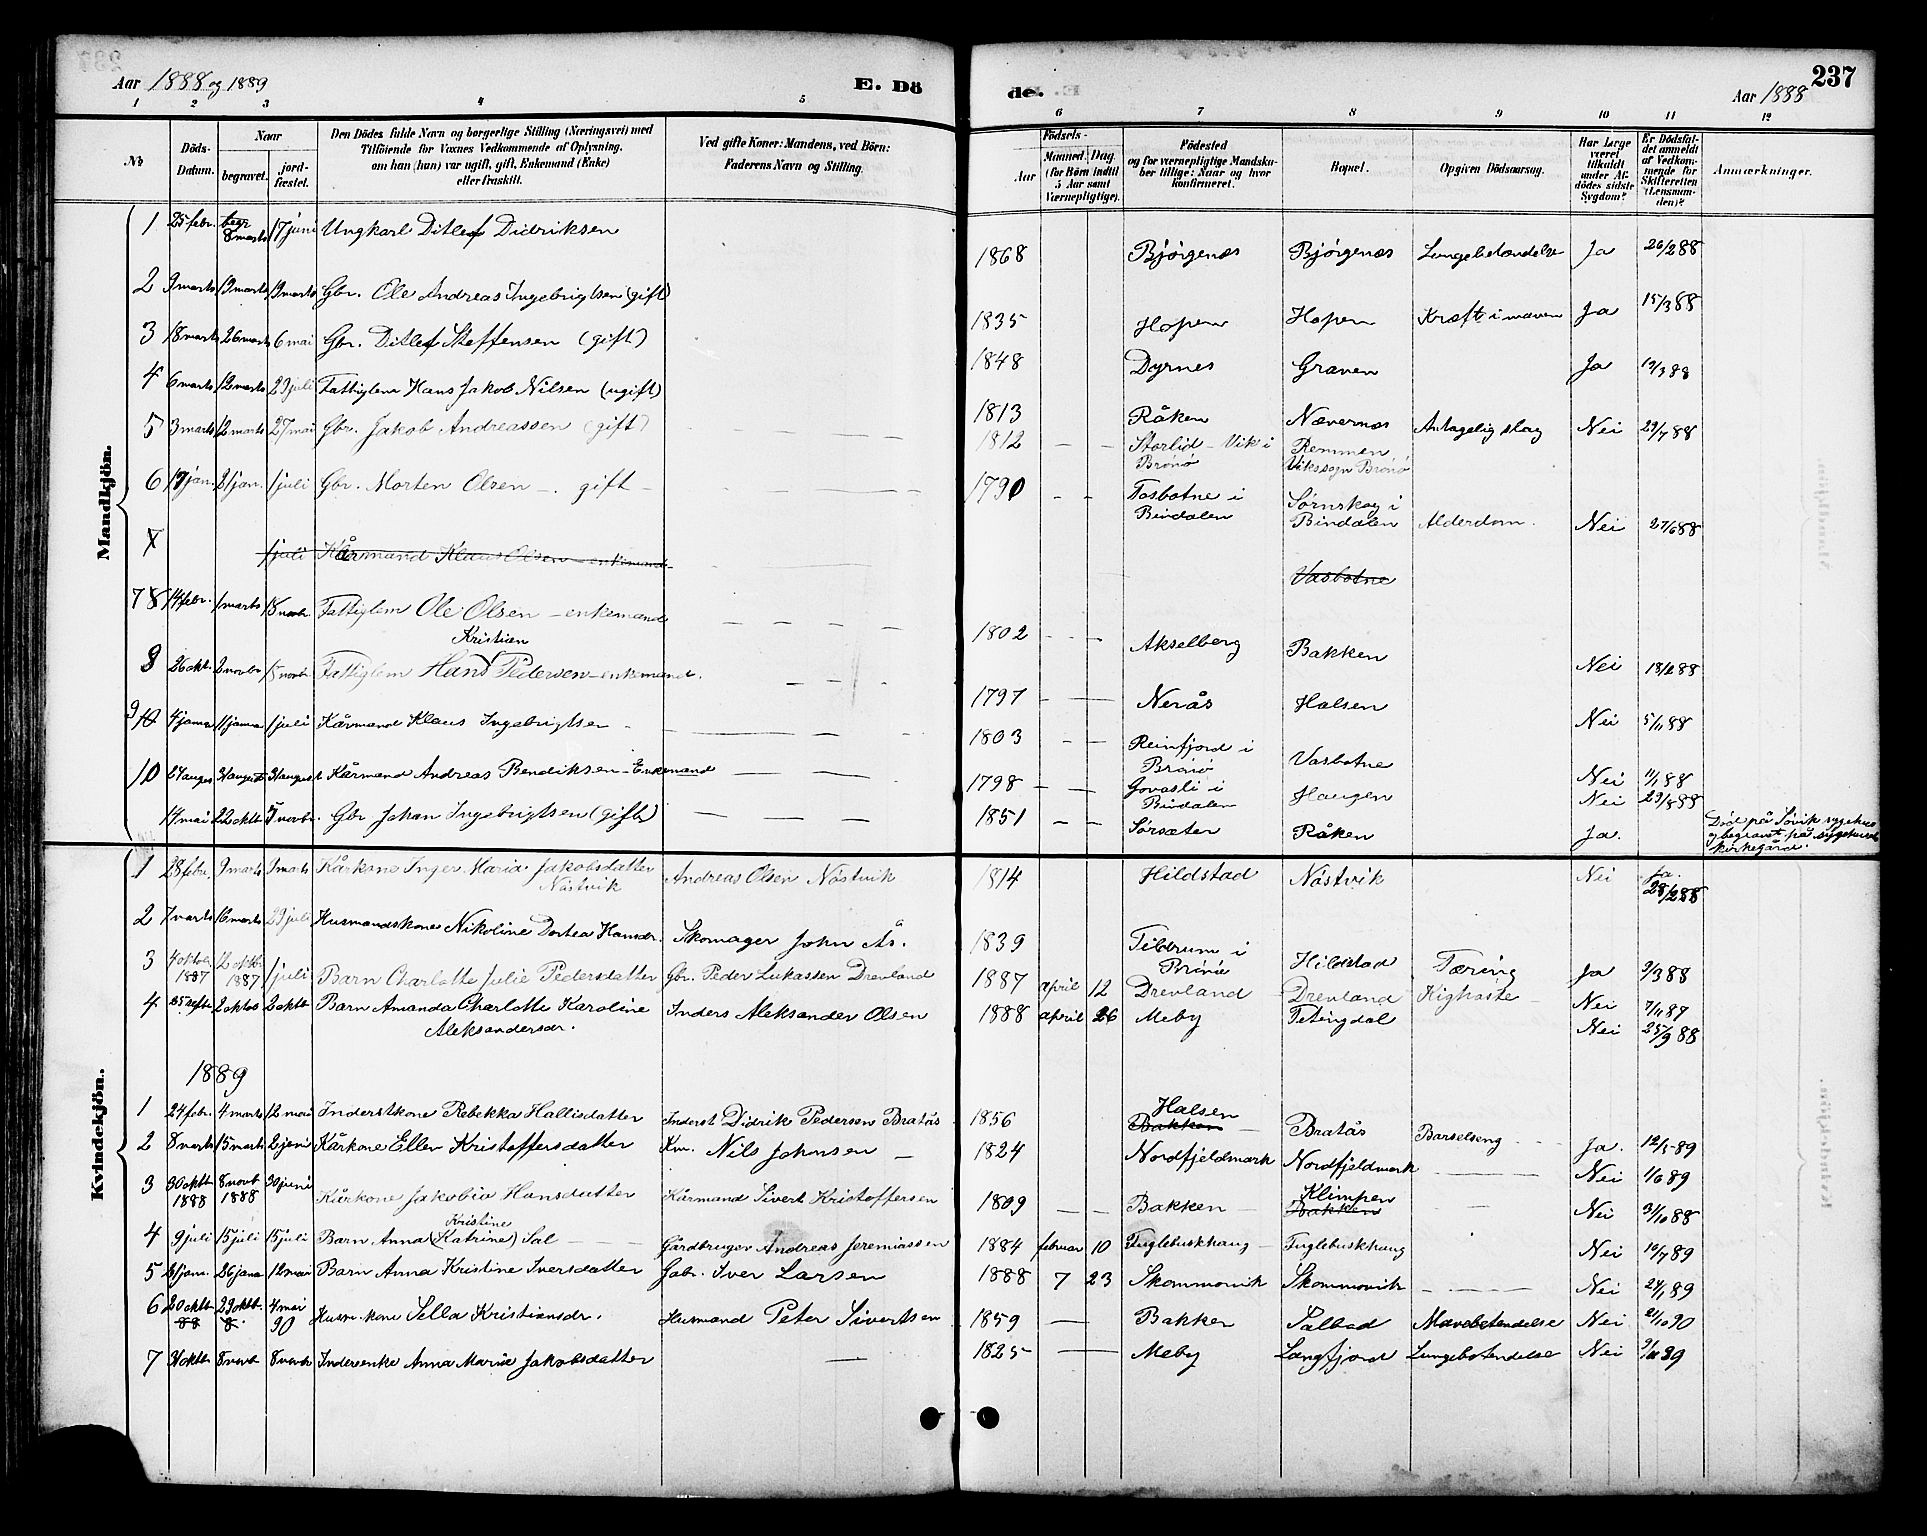 Aar 1888 og 1889
E. Dö
de.
237
Aar 1888
1 2 3 4 5 6 7 8 9 10 11 12
No
Döds-Datum.
Naar
begravet.
jord-fæstet.
Den Dödes fulde Navn og borgerlige Stilling (Næringsvei) med
Tilföiende for Voxnes Vedkommende af Oplysning,
om han (hun) var ugift, gift, Enkemand (Enke)
eller fraskilt.
Ved gifte Koner: Mandens, ved Börn:
Faderens Navn og Stilling.
Födsels-
Aar
Maaned. Dag.
(for Börn indtil
5 Aar samt
Værnepligtige).
Födested
og for værnepligtige Mandska-
ber tillige: Naar og hvor
konfirmeret.
Bopæl.
Opgiven Dödsaarsag.
Har Læge
været
tilkaldt
under Af-
dödes sidste
Sygdom?
Er Dödsfal-
det anmeldt
af Vedkom-
mende for
Skifteretten
(Lensman-
den)?
Anmærkninger.
Mandkjön.
1 25 febr. begr 8 marts 17 juni Ungkarl Ditlef Didriksen 1868 Bjørgenæs Bjørgenæs Lungebetændelse Ja 26/2 88
2 9 marts 19 marts 19 marts Gbr. Ole Andreas Ingebrigtsen (gift) 1835 Hopen Hopen Kræft i maven Ja 15/3 88
3 18 marts 26 marts 6 mai Gbr. Ditlef Steffensen (gift) 1848 Dyrnes Graven Ja 19/3 88
4 6 marts 12 marts 29 juli Fattiglem Hans Jakob Nilsen (ugift) 1813 Råken Nævernæs Antagelig slag Nei 29/7 88
5 3 marts 12 marts 27 mai Gbr. Jakob Andreassen (gift) 1812 Storlid - Vik i Brønø Remmen Vikssogn Brønø
6 19 jan. 2/ jan. 1 juli Gbr. Morten Olsen - gift - 1790 Tosbotne i Bindalen Sørnskog i Bindalen Alderdom. Nei 27/6 88
7 1 juli Kårmand Klaus Olsen - enkemand Vasbotne
7 8 14 febr. 1 marts 18 novbr. Fattiglem Ole Olsen - enkemand 1802 Akselberg Bakken Nei
8 26 okt. 2 novbr 15 novbr Fattiglem Hans Kristian Pedersen - enkemand. 1797 Nerås Halsen Nei
9 10 4 janua 11 janua 1 juli Kårmand Klaus Ingebrigtsen - 1803 Reinfjord i Brønø Vasbotne Nei 11/1 88
10 27 augus 31 august 31 august Kårmand Andreas Bendiksen - Enkemand 1798 Govasli i Bindalen Haugen Nei 29/8 88
14 mai 22 oktb 5 novbr. Gbr Johan Ingebrigtsen (gift) 1851 Sørsæter Råken Ja. Død på Søvik sygehus
og begravet på sygehusets
kirkegård.
Kvindekjön.
1 28 febr. 9 marts 9 marts Kårkone Inger Maria Jakobsdatter Nåstvik Andreas Olsen Nåstvik 1814 Hildstad Nåstvik Nei Ja. 28/2 88
2 7 marts 16 marts 29 juli Husmandskone Nikoline Dortea Hansdr. Skomager John Ås. 1839 Tildrum i Brønø Hildstad Tæring Ja 9/3 88
3 4 oktbr. 1887 12 oktb. 1887 1 juli Barn Charlotte Julie Pedersdatter Gbr. Peder Lukassen Drevland 1887 april 12 Drevland Drevland Kighoste Nei 7/11 87
4 25 septb 2 oktob 2 oktbr Barn Amanda Charlotte Karoline Aleksandersdr. Inders Aleksander Olsen 1888 april 26 Meby Tetingdal Nei 25/9 88
1889
1 24 febr. 4 marts 12 mai Inderstkone Rebekka Hallisdatter Inderst Didrik Pedersen Bratås 1856 Halsen Bakken Bratås Barselseng Ja. 12/5 89
2 8 marts 15 marts 2 juni Kårkone Ellen Kristoffersdatter Km. Nils Johnsen 1824 Nordfjeldmark Nordfjeldmark Nei 1/6 89
3 30 oktb 1888 8 novb 1888 30 juni Kårkone Jakobia Hansdatter Kårmand Sivert Kristoffersen 1809 Bakken Klimpen Bakken Nei 31/10 88
4 9 juli 15 juli 15 juli Barn Anna (Katrine) Kristine Sal Gårdbruger Andreas Jeremiassen 1884 februar 10 Fuglebuskhaug Fuglebuskhaug Nei 10/7 89
5 21 jan. 26 janua 12 mai Barn Anna Kristine Iversdatter Gabr. Iver Larsen 1888 7 23 Skommovik Skommovik Nei 24/1 89
6 20 oktb 88 29 oktb. 8. 4 mai 90 Husm.kone Sella Kristiansdr. Husmand Peter Sivertsen 1859 Bakken Salbod Mavebetendelse Nei 21/10 90
7 31 oktb 8 novb 8 novbr Indersenke Anna Maria Jakobsdatter 1825 Meby Langfjord Lungebetendelse Nei 9/11 89